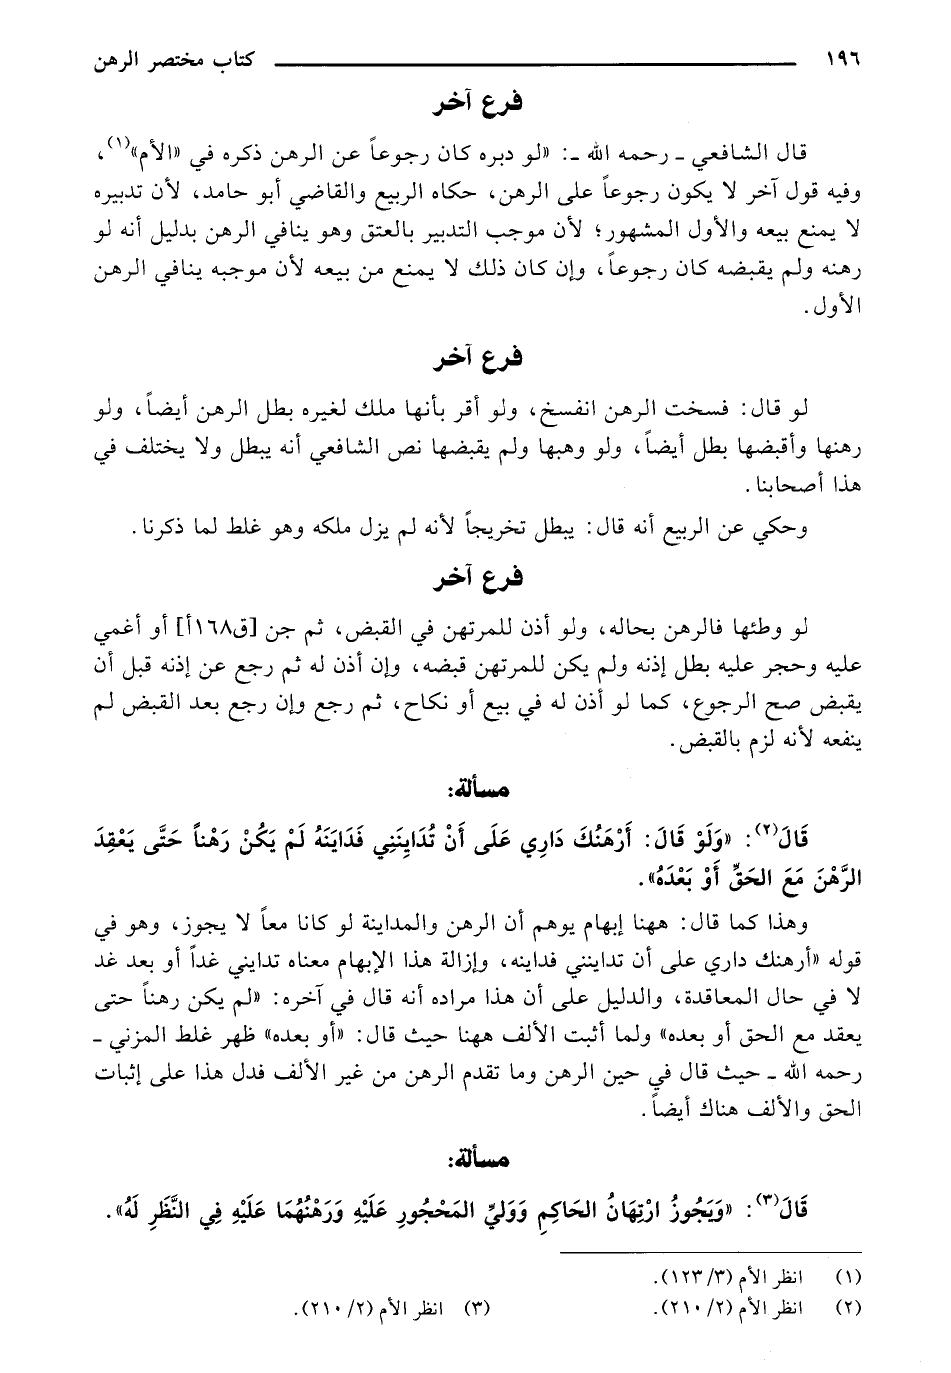 ١٩٦ كتاب مختصر الرهن
فرع آخر
قال الشافعي ـ رحمه الله ـ: «لو دبره كان رجوعاً عن الرهن ذكره في «الأم»(١)،
وفيه قول آخر لا يكون رجوعاً على الرهن، حكاه الربيع والقاضي أبو حامد، لأن تدبيره
لا يمنع بيعه والأول المشهور؛ لأن موجب التدبير بالعتق وهو ينافي الرهن بدليل أنه لو
رهنه ولم يقبضه كان رجوعاً، وإن كان ذلك لا يمنع من بيعه لأن موجبه ينافي الرهن
الأول.
فرع آخر
لو قال: فسخت الرهن انفسخ، ولو أقر بأنها ملك لغيره بطل الرهن أيضاً، ولو
رهنها وأقبضها بطل أيضاً، ولو وهبها ولم يقبضها نص الشافعي أنه يبطل ولا يختلف في
هذا أصحابنا.
وحكي عن الربيع أنه قال: يبطل تخريجاً لأنه لم يزل ملكه وهو غلط لما ذكرنا.
فرع آخر
لو وطئها فالرهن بحاله، ولو أذن للمرتهن في القبض، ثم جن [ق١٦٨أ] أو أغمي
عليه وحجر عليه بطل إذنه ولم يكن للمرتهن قبضه، وإن أذن له ثم رجع عن إذنه قبل أن
يقبض صح الرجوع، كما لو أذن له في بيع أو نكاح، ثم رجع وإن رجع بعد القبض لم
ينفعه لأنه لزم بالقبض.
مسألة:
قَالَ(٢): «وَلَوْ قَالَ: أَرْهَنُكَ دَارِي عَلَى أَنْ تُدَايِنَنِي فَدَايَنَهُ لَمْ يَكُنْ رَهْناً حَتَّى يَعْقِدَ
الرَّهْنَ مَعَ الحَقِّ أَوْ بَعْدَهُ».
وهذا كما قال: ههنا إبهام يوهم أن الرهن والمداينة لو كانا معاً لا يجوز، وهو في
قوله «أرهنك داري على أن تداينني فداينه، وإزالة هذا الإبهام معناه تدايني غداً أو بعد غد
لا في حال المعاقدة، والدليل على أن هذا مراده أنه قال في آخره: «لم يكن رهناً حتى
يعقد مع الحق أو بعده» ولما أثبت الألف ههنا حيث قال: «أو بعده» ظهر غلط المزني ـ
رحمه الله ـ حيث قال في حين الرهن وما تقدم الرهن من غير الألف فدل هذا على إثبات
الحق والألف هناك أيضاً.
مسألة:
قَالَ(٣): «وَيَجُوزُ ارْتِهَانُ الحَاكِمِ وَوَلِيِّ المَحْجُورِ عَلَيْهِ وَرَهْنُهُمَا عَلَيْهِ فِي النَّظَرِ لَهُ».
(١) انظر الأم (٣/ ١٢٣).
(٢) انظر الأم (٢/ ٢١٠). (٣) انظر الأم (٢/ ٢١٠).